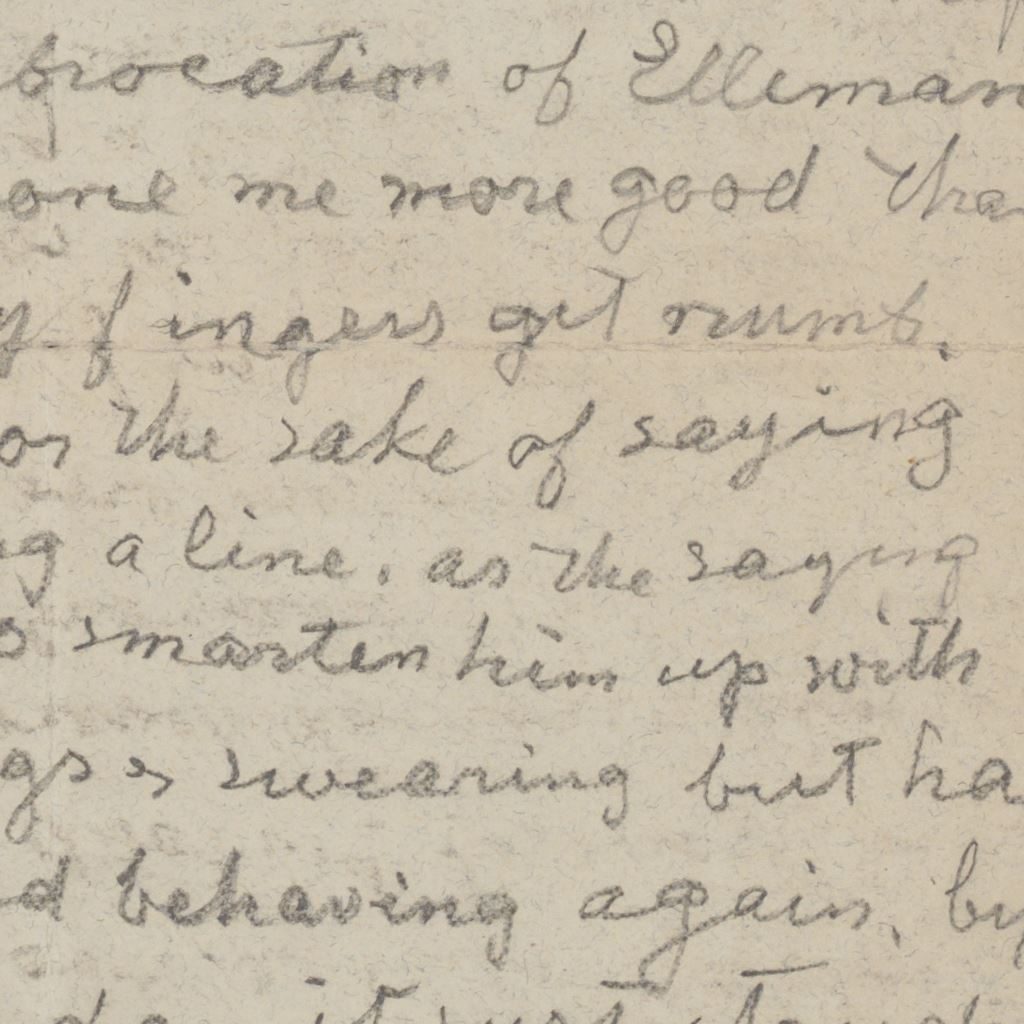 brocation of Elleman
one me more good tha
y fingers get numb.
or the sake of saying
ng a line. as the saying
s smarten him up with
gs & swearing but ha
d behaving again, by
it just